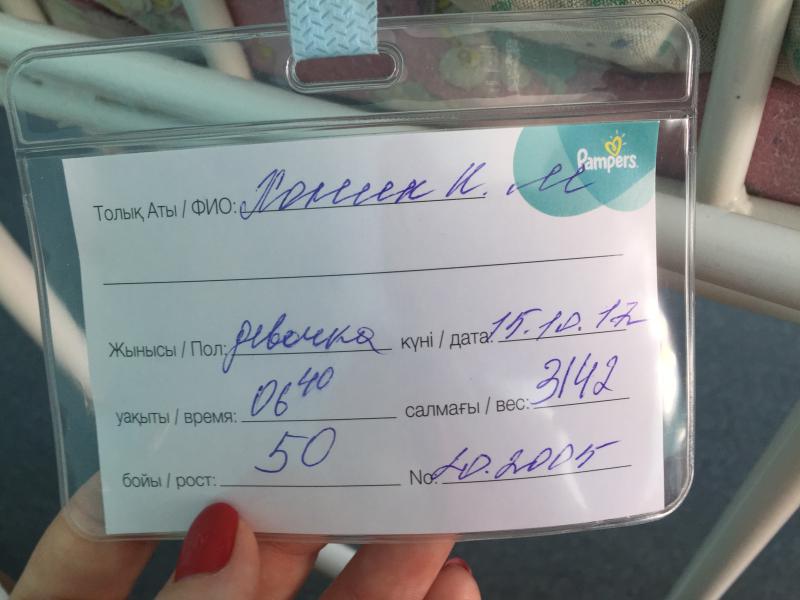 Pampers
Толық Аты / ФИО: Хомик К. М
Жынысы / Пол: девочка күні / дата: 15.10.17
уақыты / время: 06⁴⁰ салмағы / вес: 3142
бойы / рост: 50 No 20.2005